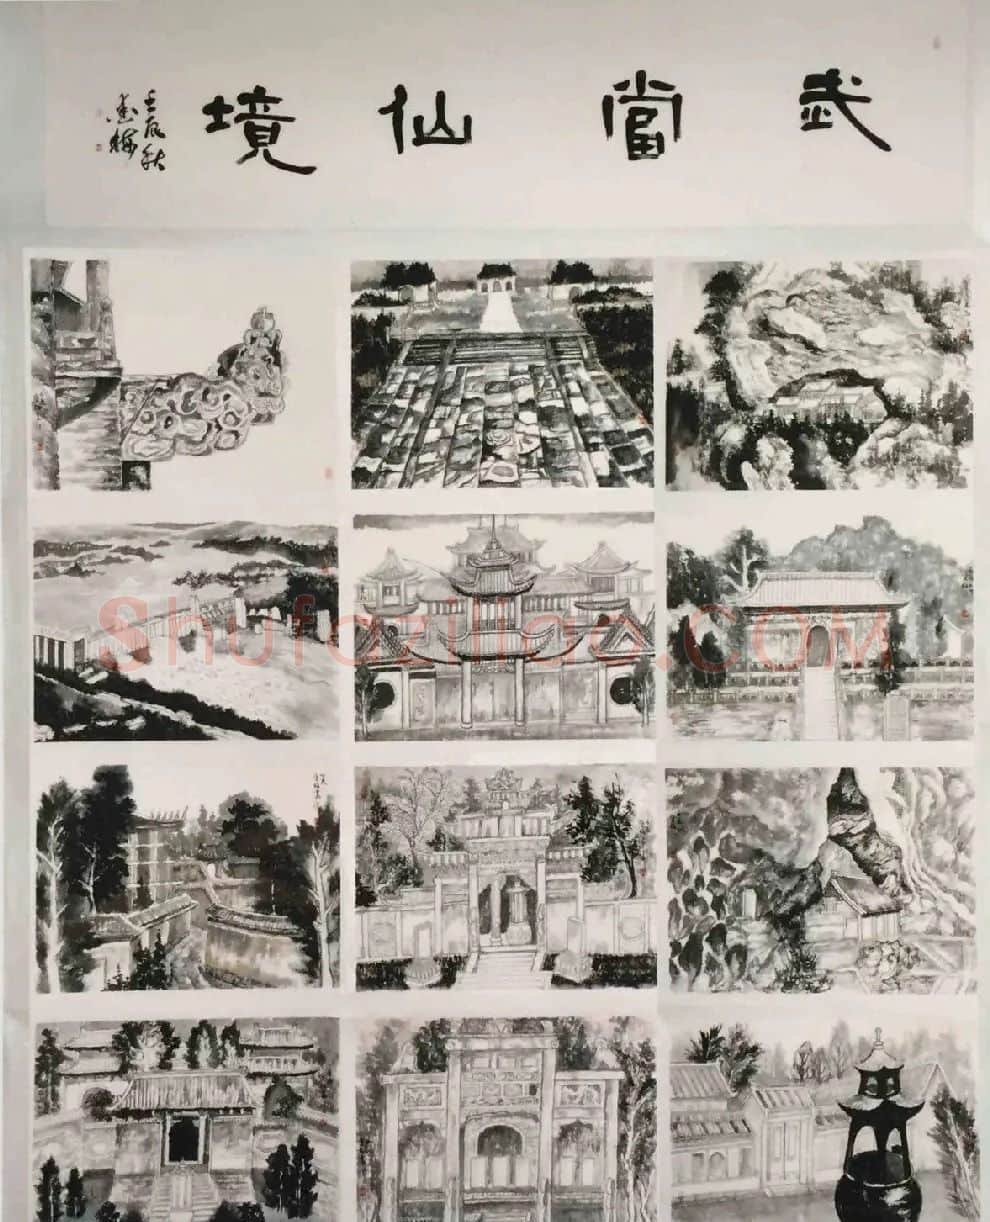 武當仙境
壬辰秋
Shufaziliao.COM